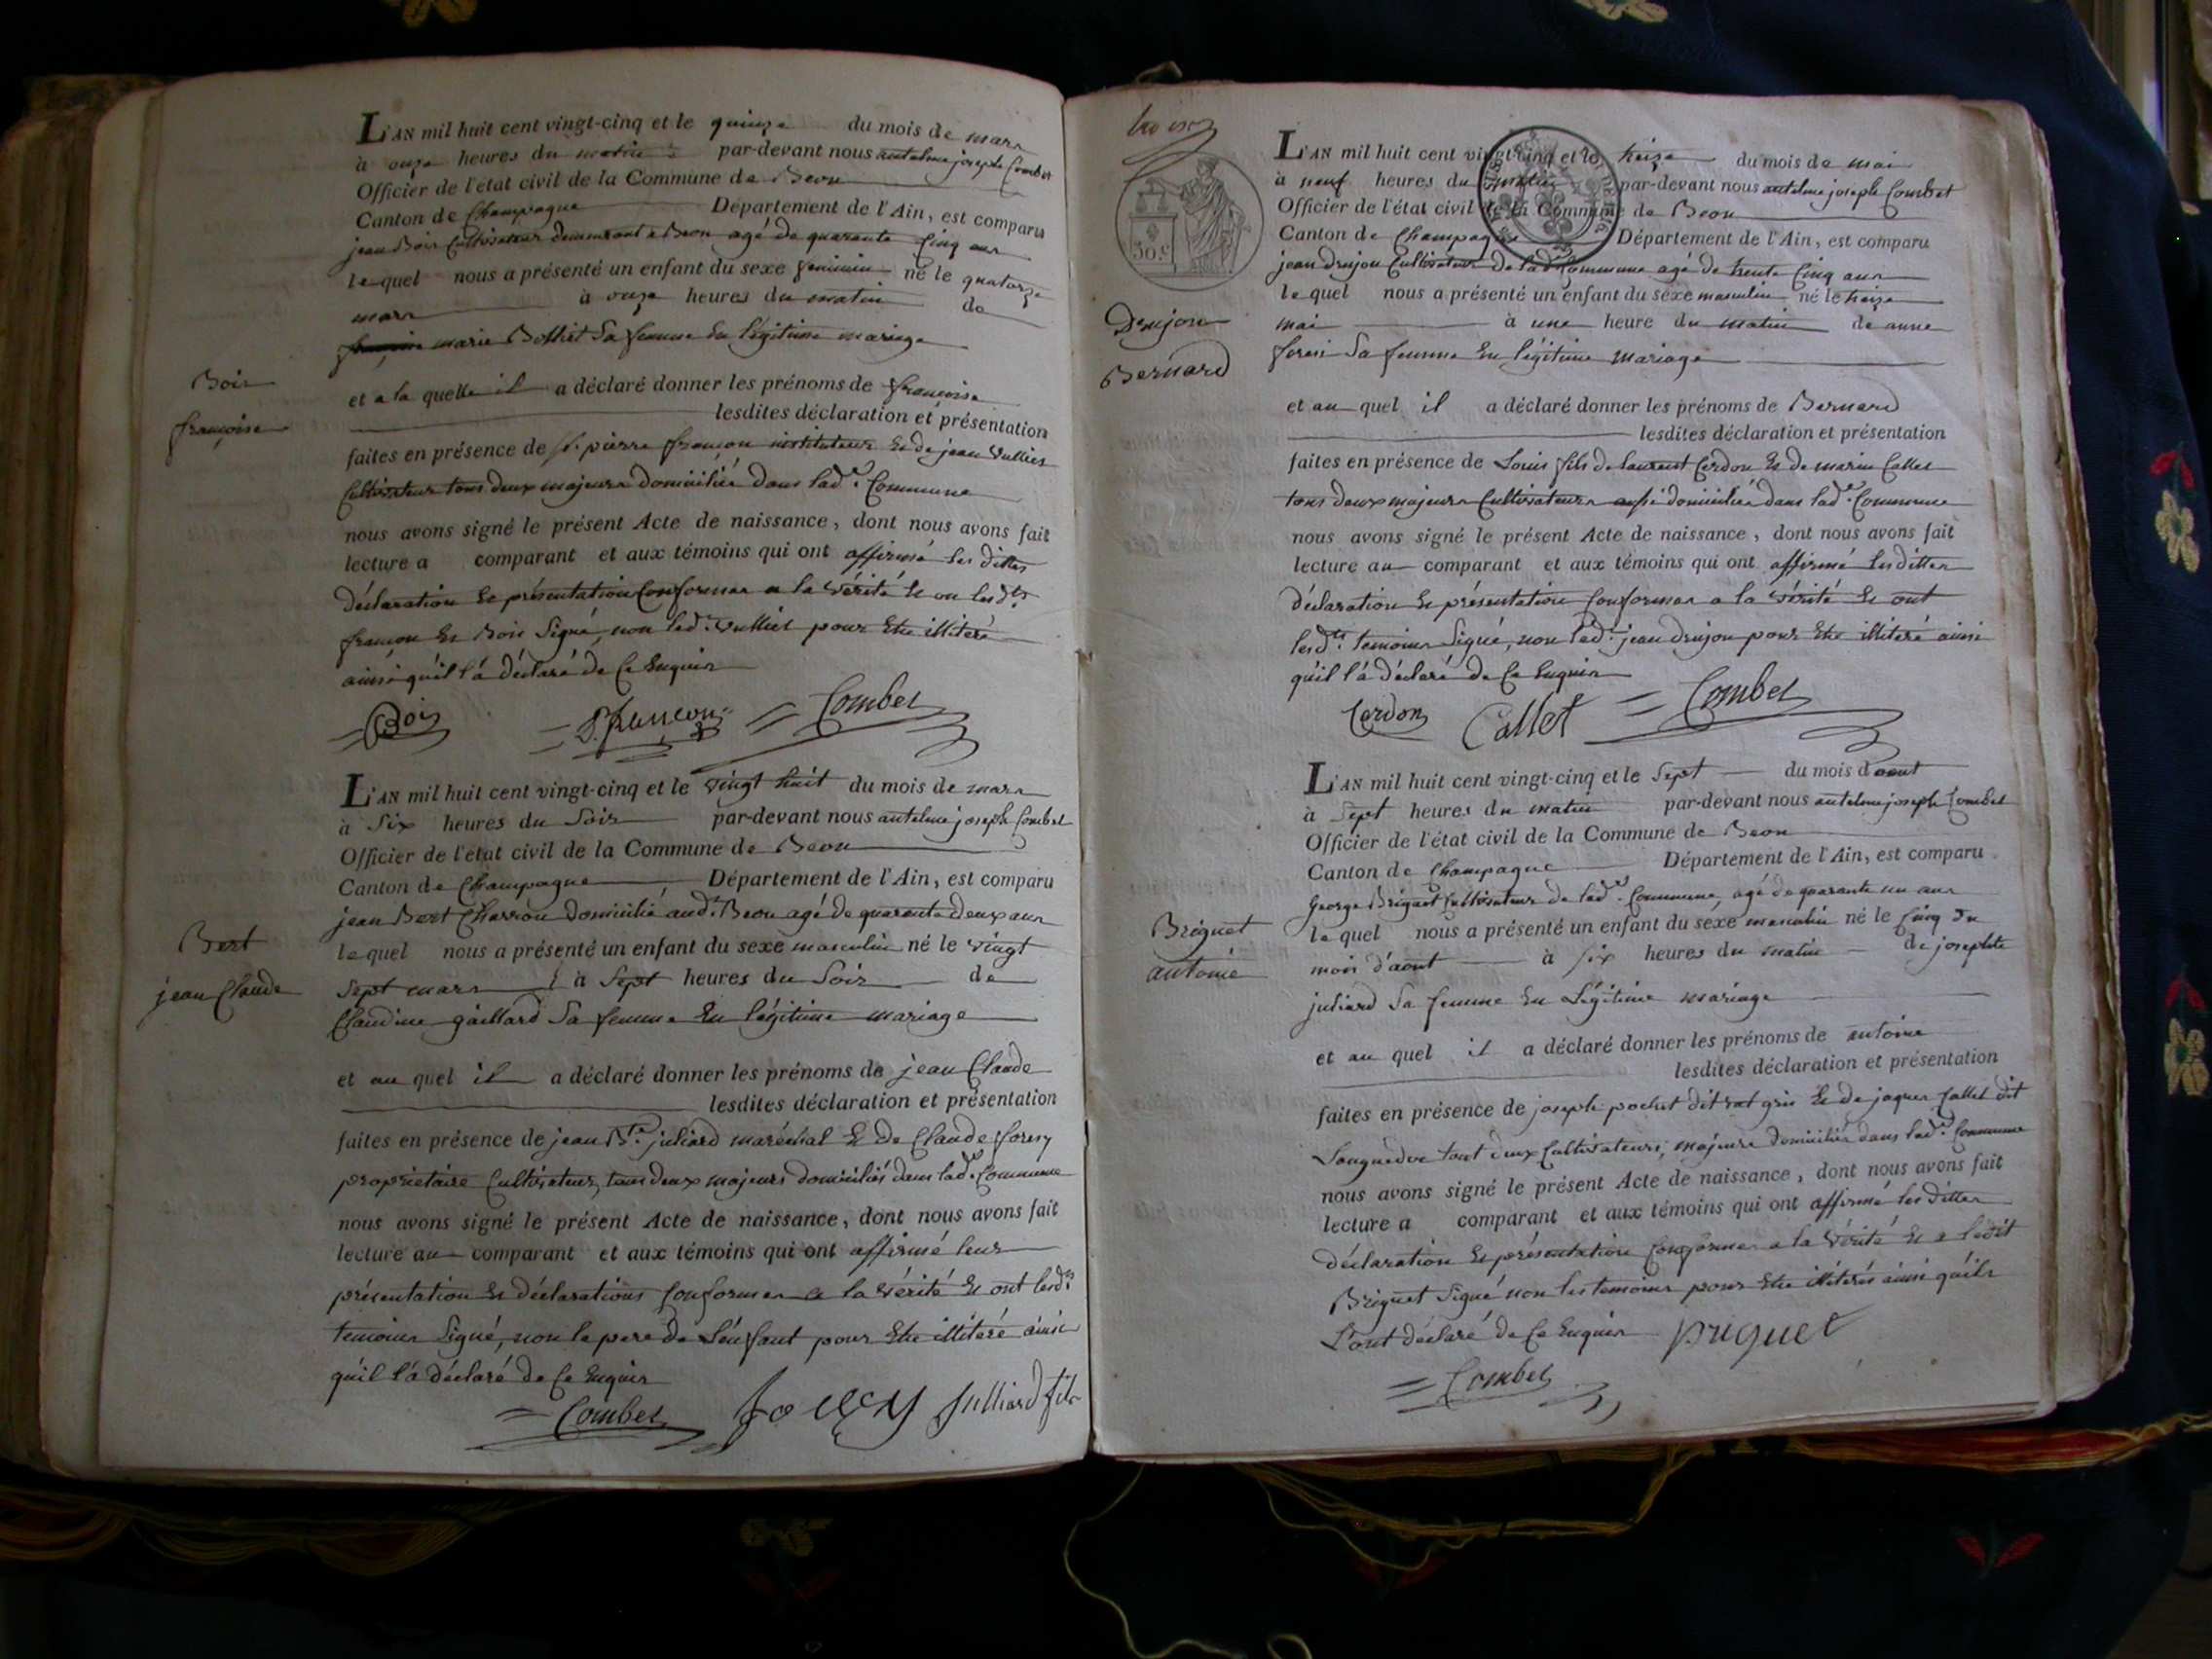 L'AN mil huit cent vingt-cinq et le quinze du mois de mars
à onze heures du matin par-devant nous antelme joseph Combet
Officier de l'état civil de la Commune de Beon
Canton de Champagne Département de l'Ain, est comparu
jean Bois Cultivateur demeurant a Beon agé de quarante Cinq ans
le quel nous a présenté un enfant du sexe feminin né le quatorze
mars à onze heures du matin de
marie Bolliet Sa femme En légitime mariage
Bois
françoise
et a la quelle il a déclaré donner les prénoms de françoise
lesdites déclaration et présentation
faites en présence de pierre françon instituteur Et de jean Vulliet
Cultivateur tous deux majeurs domicilié dans lad.e Commune
nous avons signé le présent Acte de naissance, dont nous avons fait
lecture a comparant et aux témoins qui ont affirmé les dittes
déclaration Et présentation Conformes a la Vérité Et on lesd.ts
françon Et Bois Signé, non led.t Vulliet pour Etre illiteré
ainsi qu'il l'a déclaré de Ce Enquis
Bois P. françon Combet
L'AN mil huit cent vingt-cinq et le vingt huit du mois de mars
à Six heures du Soir par-devant nous antelme joseph Combet
Officier de l'état civil de la Commune de Beon
Canton de Champagne Département de l'Ain, est comparu
jean Bert Charron domicilié aud.t Beon agé de quarante deux ans
Bert
jean Claude
le quel nous a présenté un enfant du sexe masculin né le vingt
Sept mars à Sept heures du Soir de
Claudine gaillard Sa femme En légitime mariage
et au quel il a déclaré donner les prénoms de jean Claude
lesdites déclaration et présentation
faites en présence de jean B.te juliard maréchal Et de Claude foresy
proprietaire Cultivateur, tous deux majeurs domiciliés dans lad.e Commune
nous avons signé le présent Acte de naissance, dont nous avons fait
lecture au comparant et aux témoins qui ont affirmé leur
présentation Et déclarations Conformes a la Vérité Et ont lesd.ts
temoins Signé, non le pere de L'enfant pour Etre illiteré ainsi
qu'il l'a déclaré de Ce Enquis
Combet forecy julliard fils
30 c.
L'AN mil huit cent vingt-cinq et le treize du mois de mai
à neuf heures du matin par-devant nous antelme joseph Combet
Officier de l'état civil de la Commune de Beon
Canton de Champagne Département de l'Ain, est comparu
jean drujon Cultivateur de lad.e Commune agé de trente Cinq ans
le quel nous a présenté un enfant du sexe masculin né le treize
Drujon
Bernard
mai à une heure du matin de anne
foresi Sa femme En légitime mariage
et au quel il a déclaré donner les prénoms de Bernard
lesdites déclaration et présentation
faites en présence de Louis fils de laurent Cerdon Et de marin Callet
tous deux majeurs Cultivateurs aussi domiciliés dans lad.e Commune
nous avons signé le présent Acte de naissance, dont nous avons fait
lecture au comparant et aux témoins qui ont affirmé les dittes
déclaration Et présentation Conformes a la Vérité Et ont
lesd.ts temoins Signé, non led.t jean drujon pour Etre illiteré ainsi
qu'il l'a déclaré de Ce Enquis
Cerdon Callet Combet
L'AN mil huit cent vingt-cinq et le Sept du mois d'aout
à Sept heures du matin par-devant nous antelme joseph Combet
Officier de l'état civil de la Commune de Beon
Canton de Champagne Département de l'Ain, est comparu
George Briguet Cultivateur de lad.e Commune, agé de quarante un ans
Briguet
antoine
le quel nous a présenté un enfant du sexe masculin né le Cinq du
mois d'aout à six heures du matin de josephte
juliard Sa femme En Légitime mariage
et au quel il a déclaré donner les prénoms de antoine
lesdites déclaration et présentation
faites en présence de joseph pochet dit rat gris Et de jaques Callet dit
Languedoc tout deux Cultivateurs, majeurs domiciliés dans lad.e Commune
nous avons signé le présent Acte de naissance, dont nous avons fait
lecture a comparant et aux témoins qui ont affirmé les dittes
déclaration Et présentation Conformes a la Vérité Et a ledit
Briguet Signé non les temoins pour Etre illiterés ainsi qu'ils
L'ont déclaré de Ce Enquis briguet
Combet